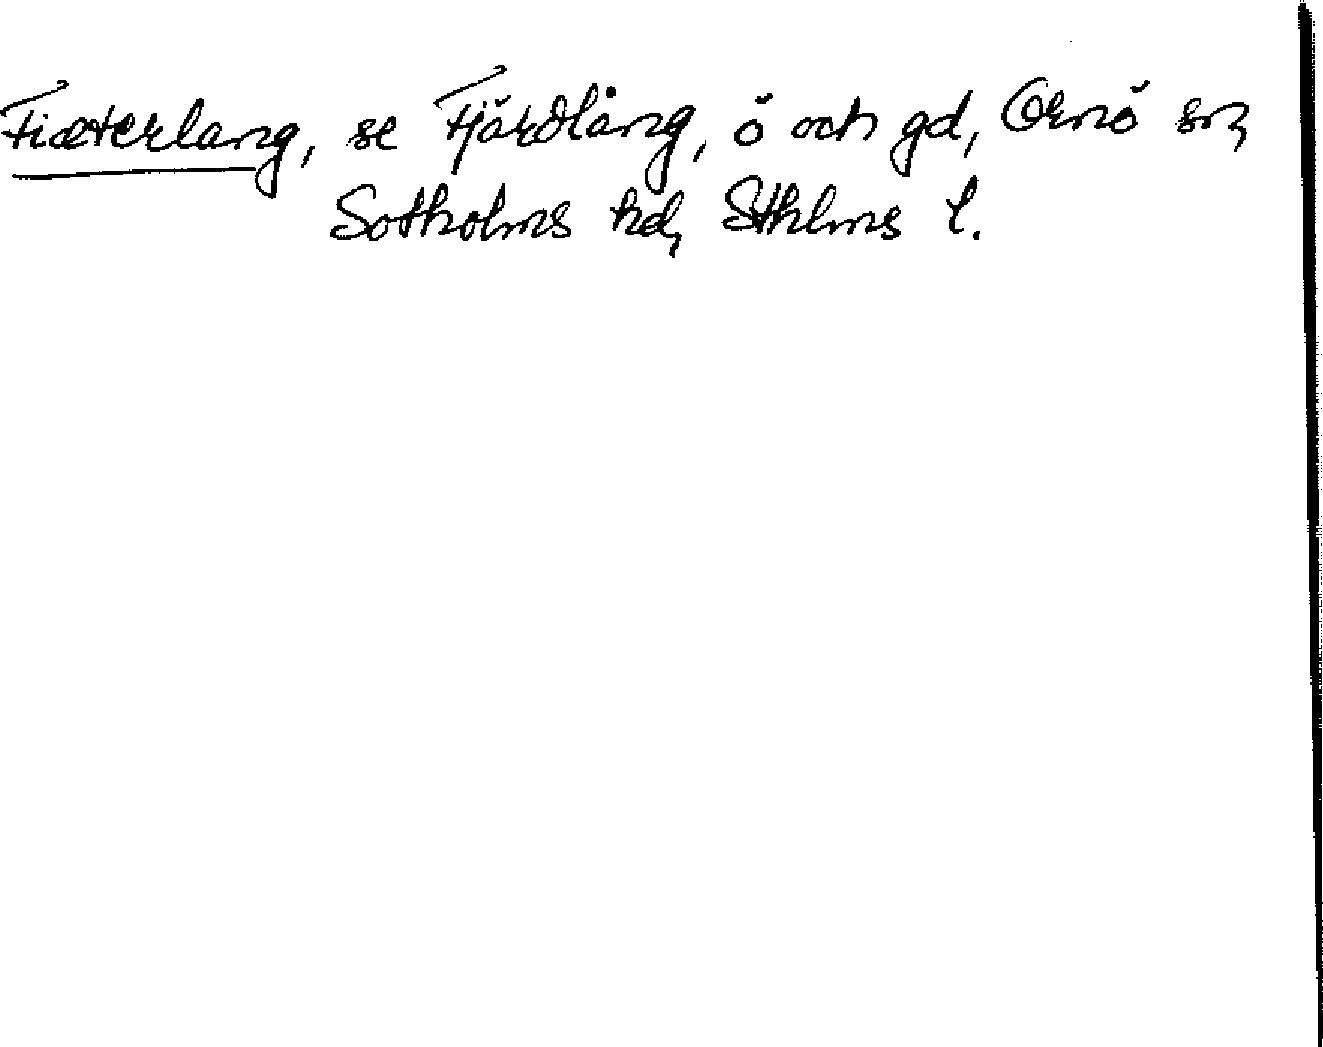 Fiæterlang, se Fjärdlång, ö och gd, Ornö sn,
Sotholms hd, Sthlms l.